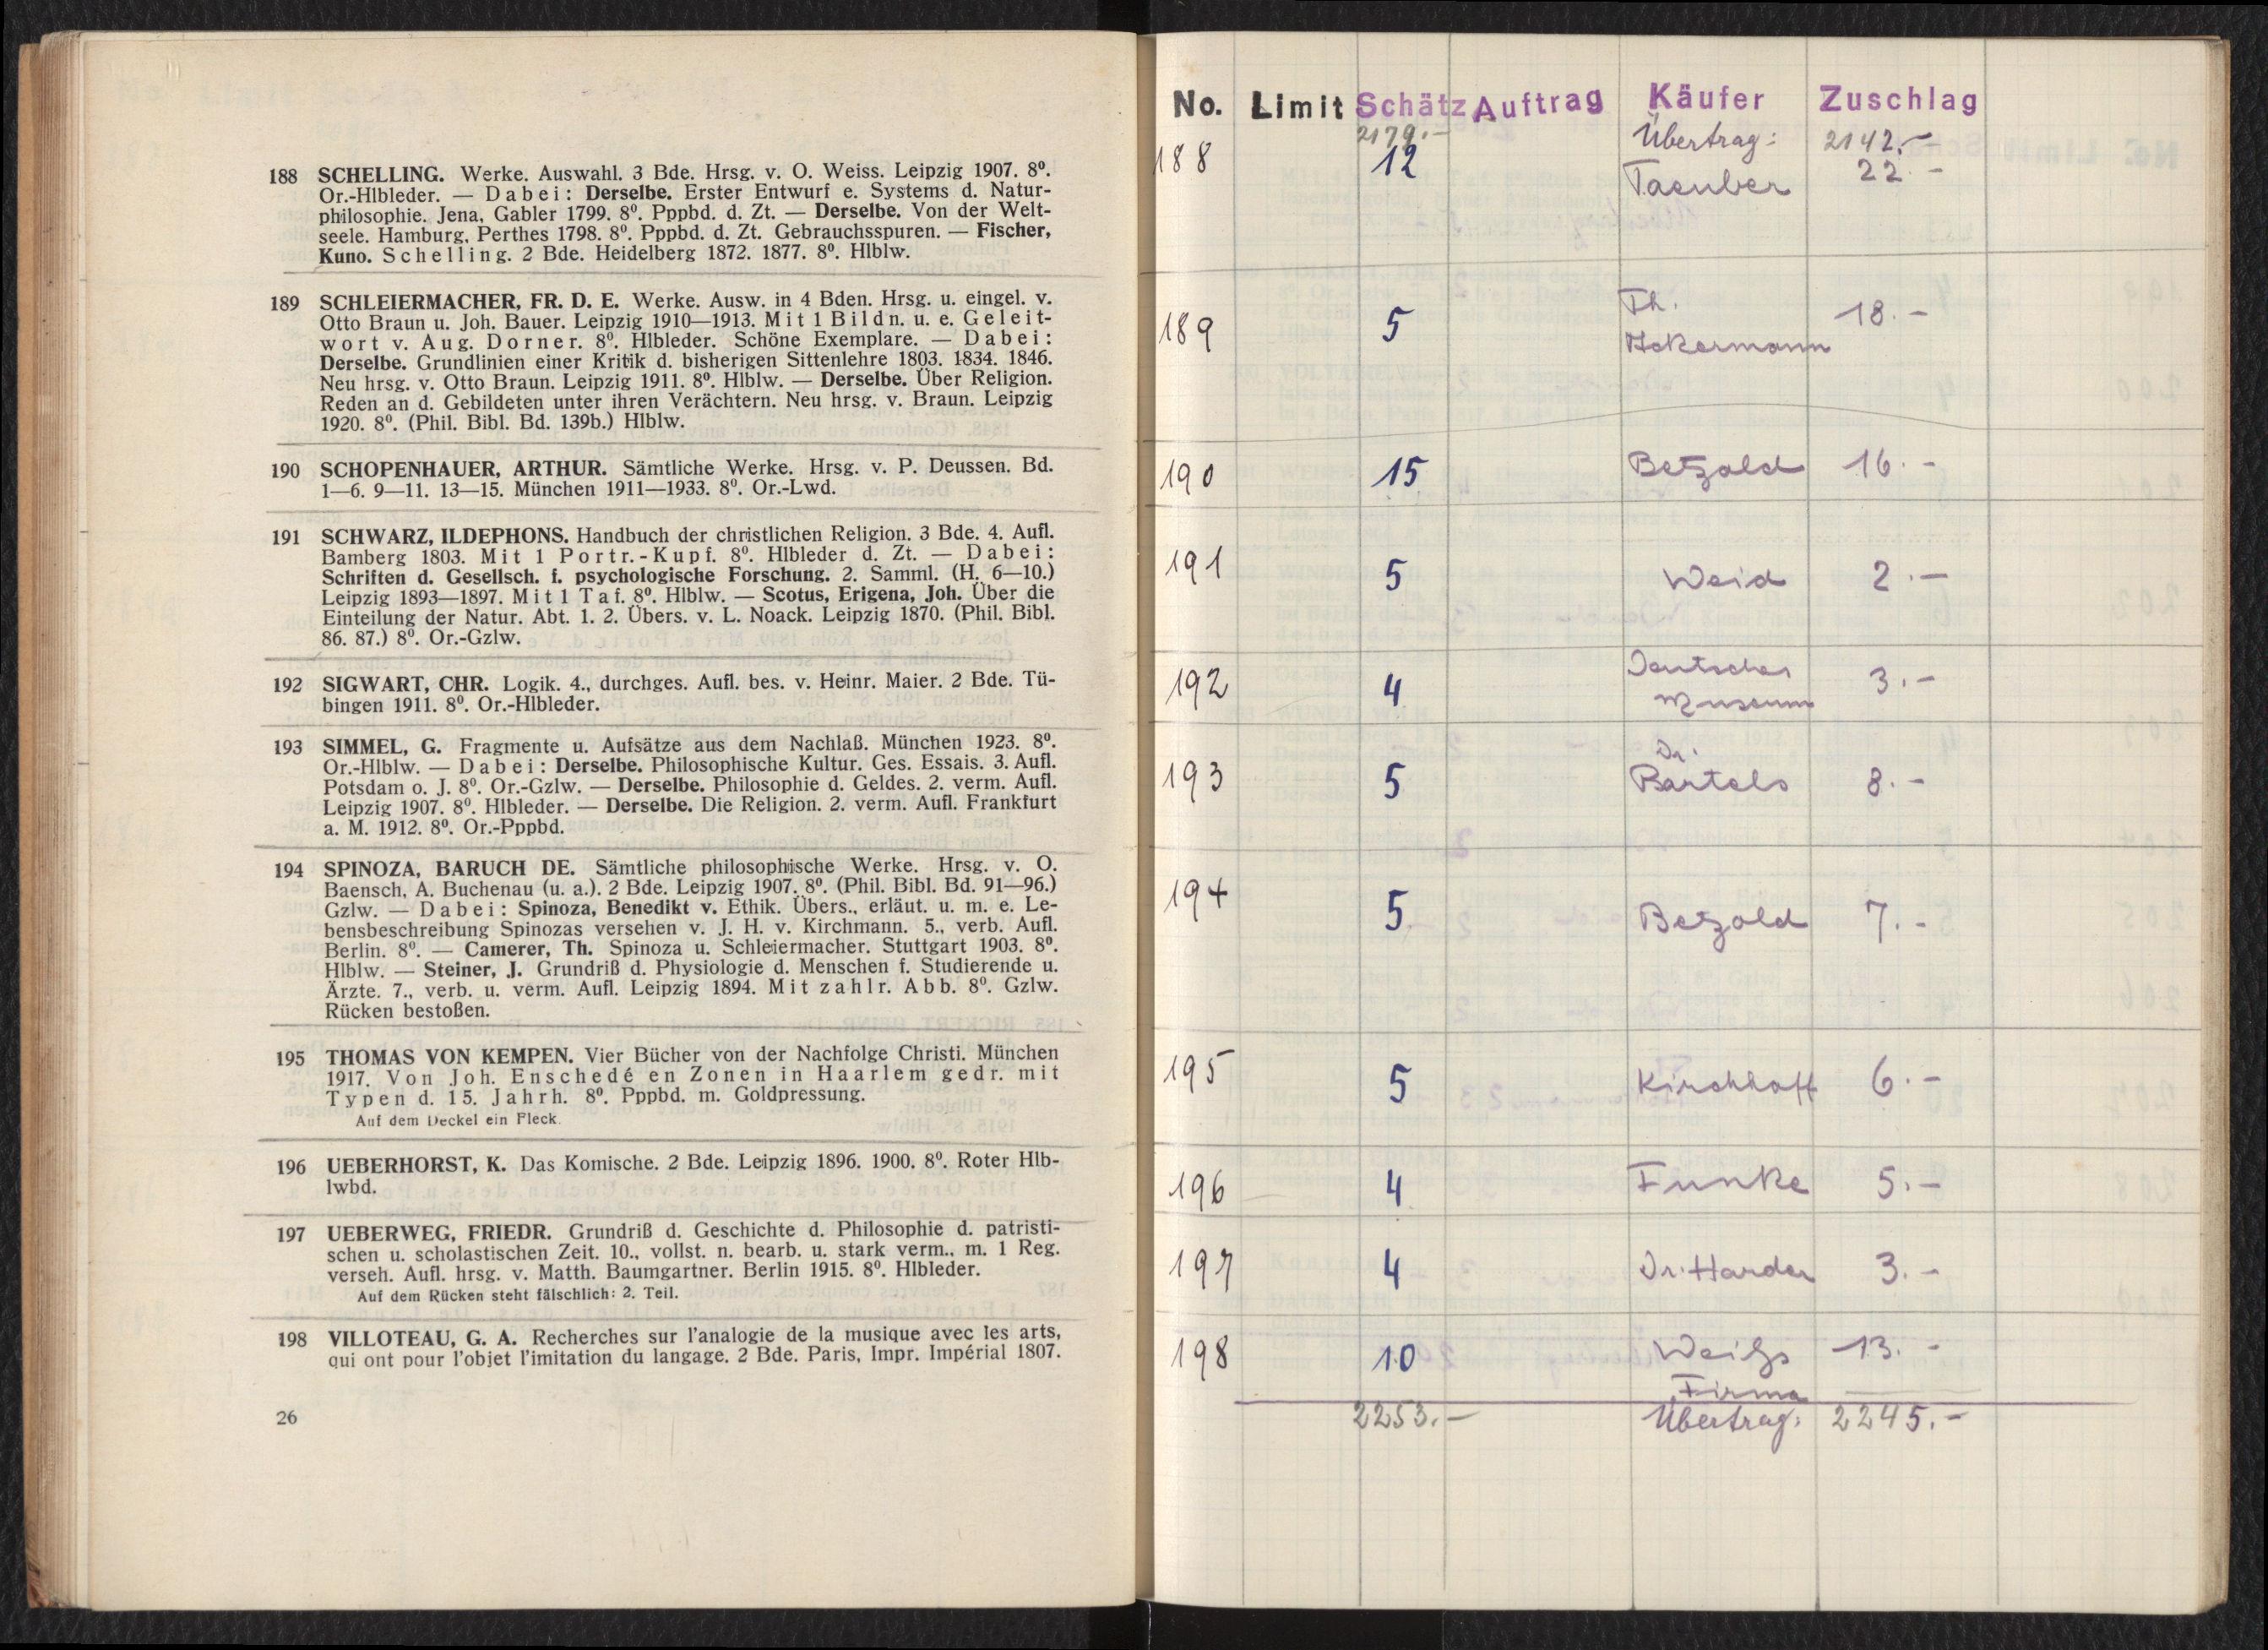 188 SCHELLING. Werke. Auswahl. 3 Bde. Hrsg. v. O. Weiss. Leipzig 1907. 8⁰.
Or.-Hlbleder. — Dabei: Derselbe. Erster Entwurf e. Systems d. Natur-
philosophie. Jena, Gabler 1799. 8⁰. Pppbd. d. Zt. — Derselbe. Von der Welt-
seele. Hamburg, Perthes 1798. 8⁰. Pppbd. d. Zt. Gebrauchsspuren. — Fischer,
Kuno. Schelling. 2 Bde. Heidelberg 1872. 1877. 8⁰. Hlblw.
189 SCHLEIERMACHER, FR. D. E. Werke. Ausw. in 4 Bden. Hrsg. u. eingel. v.
Otto Braun u. Joh. Bauer. Leipzig 1910—1913. Mit 1 Bildn. u. e. Geleit-
wort v. Aug. Dorner. 8⁰. Hlbleder. Schöne Exemplare. — Dabei:
Derselbe. Grundlinien einer Kritik d. bisherigen Sittenlehre 1803. 1834. 1846.
Neu hrsg. v. Otto Braun. Leipzig 1911. 8⁰. Hlblw. — Derselbe. Über Religion.
Reden an d. Gebildeten unter ihren Verächtern. Neu hrsg. v. Braun. Leipzig
1920. 8⁰. (Phil. Bibl. Bd. 139b.) Hlblw.
190 SCHOPENHAUER, ARTHUR. Sämtliche Werke. Hrsg. v. P. Deussen. Bd.
1—6. 9—11. 13—15. München 1911—1933. 8⁰. Or.-Lwd.
191 SCHWARZ, ILDEPHONS. Handbuch der christlichen Religion. 3 Bde. 4. Aufl.
Bamberg 1803. Mit 1 Portr.-Kupf. 8⁰. Hlbleder d. Zt. — Dabei:
Schriften d. Gesellsch. f. psychologische Forschung. 2. Samml. (H. 6—10.)
Leipzig 1893—1897. Mit 1 Taf. 8⁰. Hlblw. — Scotus, Erigena, Joh. Über die
Einteilung der Natur. Abt. 1. 2. Übers. v. L. Noack. Leipzig 1870. (Phil. Bibl.
86. 87.) 8⁰. Or.-Gzlw.
192 SIGWART, CHR. Logik. 4., durchges. Aufl. bes. v. Heinr. Maier. 2 Bde. Tü-
bingen 1911. 8⁰. Or.-Hlbleder.
193 SIMMEL, G. Fragmente u. Aufsätze aus dem Nachlaß. München 1923. 8⁰.
Or.-Hlblw. — Dabei: Derselbe. Philosophische Kultur. Ges. Essais. 3. Aufl.
Potsdam o. J. 8⁰. Or.-Gzlw. — Derselbe. Philosophie d. Geldes. 2. verm. Aufl.
Leipzig 1907. 8⁰. Hlbleder. — Derselbe. Die Religion. 2. verm. Aufl. Frankfurt
a. M. 1912. 8⁰. Or.-Pppbd.
194 SPINOZA, BARUCH DE. Sämtliche philosophische Werke. Hrsg. v. O.
Baensch, A. Buchenau (u. a.). 2 Bde. Leipzig 1907. 8⁰. (Phil. Bibl. Bd. 91—96.)
Gzlw. — Dabei: Spinoza, Benedikt v. Ethik. Übers., erläut. u. m. e. Le-
bensbeschreibung Spinozas versehen v. J. H. v. Kirchmann. 5., verb. Aufl.
Berlin. 8⁰. — Camerer, Th. Spinoza u. Schleiermacher. Stuttgart 1903. 8⁰.
Hlblw. — Steiner, J. Grundriß d. Physiologie d. Menschen f. Studierende u.
Ärzte. 7., verb. u. verm. Aufl. Leipzig 1894. Mit zahlr. Abb. 8⁰. Gzlw.
Rücken bestoßen.
195 THOMAS VON KEMPEN. Vier Bücher von der Nachfolge Christi. München
1917. Von Joh. Enschedé en Zonen in Haarlem gedr. mit
Typen d. 15. Jahrh. 8⁰. Pppbd. m. Goldpressung.
Auf dem Deckel ein Fleck.
196 UEBERHORST, K. Das Komische. 2 Bde. Leipzig 1896. 1900. 8⁰. Roter Hlb-
lwbd.
197 UEBERWEG, FRIEDR. Grundriß d. Geschichte d. Philosophie d. patristi-
schen u. scholastischen Zeit. 10., vollst. n. bearb. u. stark verm., m. 1 Reg.
verseh. Aufl. hrsg. v. Matth. Baumgartner. Berlin 1915. 8⁰. Hlbleder.
Auf dem Rücken steht fälschlich: 2. Teil.
198 VILLOTEAU, G. A. Recherches sur l'analogie de la musique avec les arts,
qui ont pour l'objet l'imitation du langage. 2 Bde. Paris, Impr. Impérial 1807.
26
No. Limit Schätz Auftrag Käufer Zuschlag
2179.- Übertrag: 2142.-
188 12 Taeuber 22.-
189 5 Th. Ackermann 18.-
190 15 Betzold 16.-
191 5 Weid 2.-
192 4 Deutsches Museum 3.-
193 5 Dr. Bartels 8.-
194 5 Betzold 7.-
195 5 Kirchhoff 6.-
196 4 Funke 5.-
197 4 Dr. Harder 3.-
198 10 Weihs 13.-
Firma
2253.- Übertrag: 2245.-